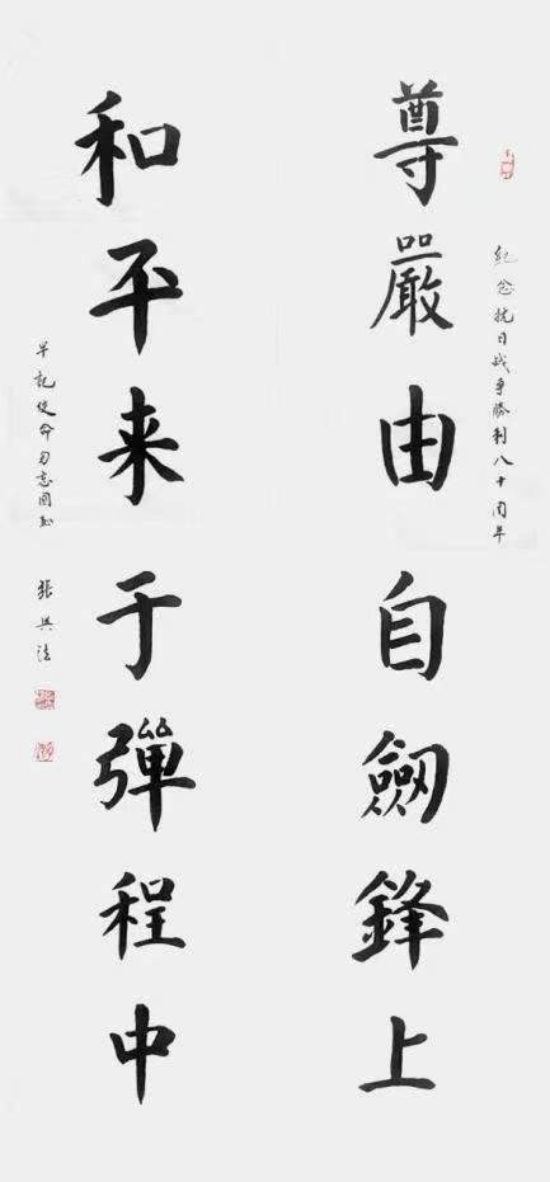 紀念抗日战争勝利八十周年
尊嚴由自劔鋒上
和平来于彈程中
牢記使命勿忘國恥
張兴法